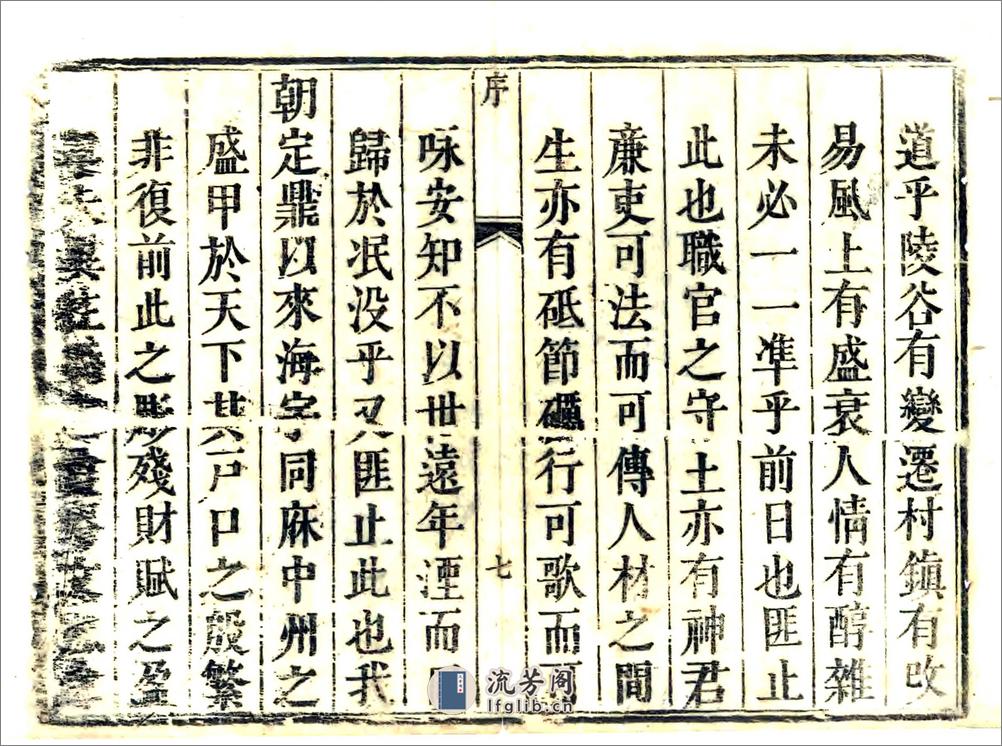 道乎陵谷有變遷村鎭有改
易風土有盛衰人情有醇雜
未必一一準乎前日也匪止
此也職官之守土亦有神君
廉吏可法而可傳人材之間
生亦有砥節礪行可歌而可
序
七
咏安知不以世遠年湮而
歸於泯没乎又匪止此也我
朝定鼎以來海宇同庥中州之
盛甲於天下其戸口之殷繁
非復前此之彫殘財賦之盈
流芳阁
lfglib.cn